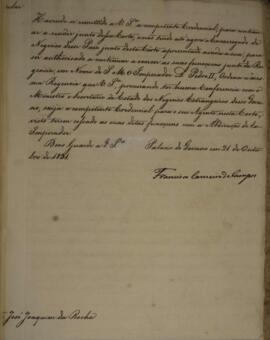 Havendo remettido a V. S.ª a competente Credencial, para continu-
ar a residir junto dessa Corte, e não tendo até agora o Encarregado de
Negocios desse Paiz junto desta Corte apresentado ainda a sua, para
ser authorisado a continuar a exercer as suas funcçoens junto da Re-
gencia, em Nome de S. M. O Imperador D. Pedro II, Ordena a mes-
ma Regencia que V. S.ª, procurando ter huma Conferencia com o
Ministro e Secretario de Estado dos Negocios Estrangeiros desse Gover-
no, exija a competente Credencial para o seu Agente nesta Corte,
visto terem cessado as suas ditas funcçoens com a Abdicação do Ex-
Imperador.
Deos Guarde a V. S.ª Palacio do Governo em 21 de Outu-
bro de 1831.
Francisco Carneiro de Campos
José Joaquim da Rocha